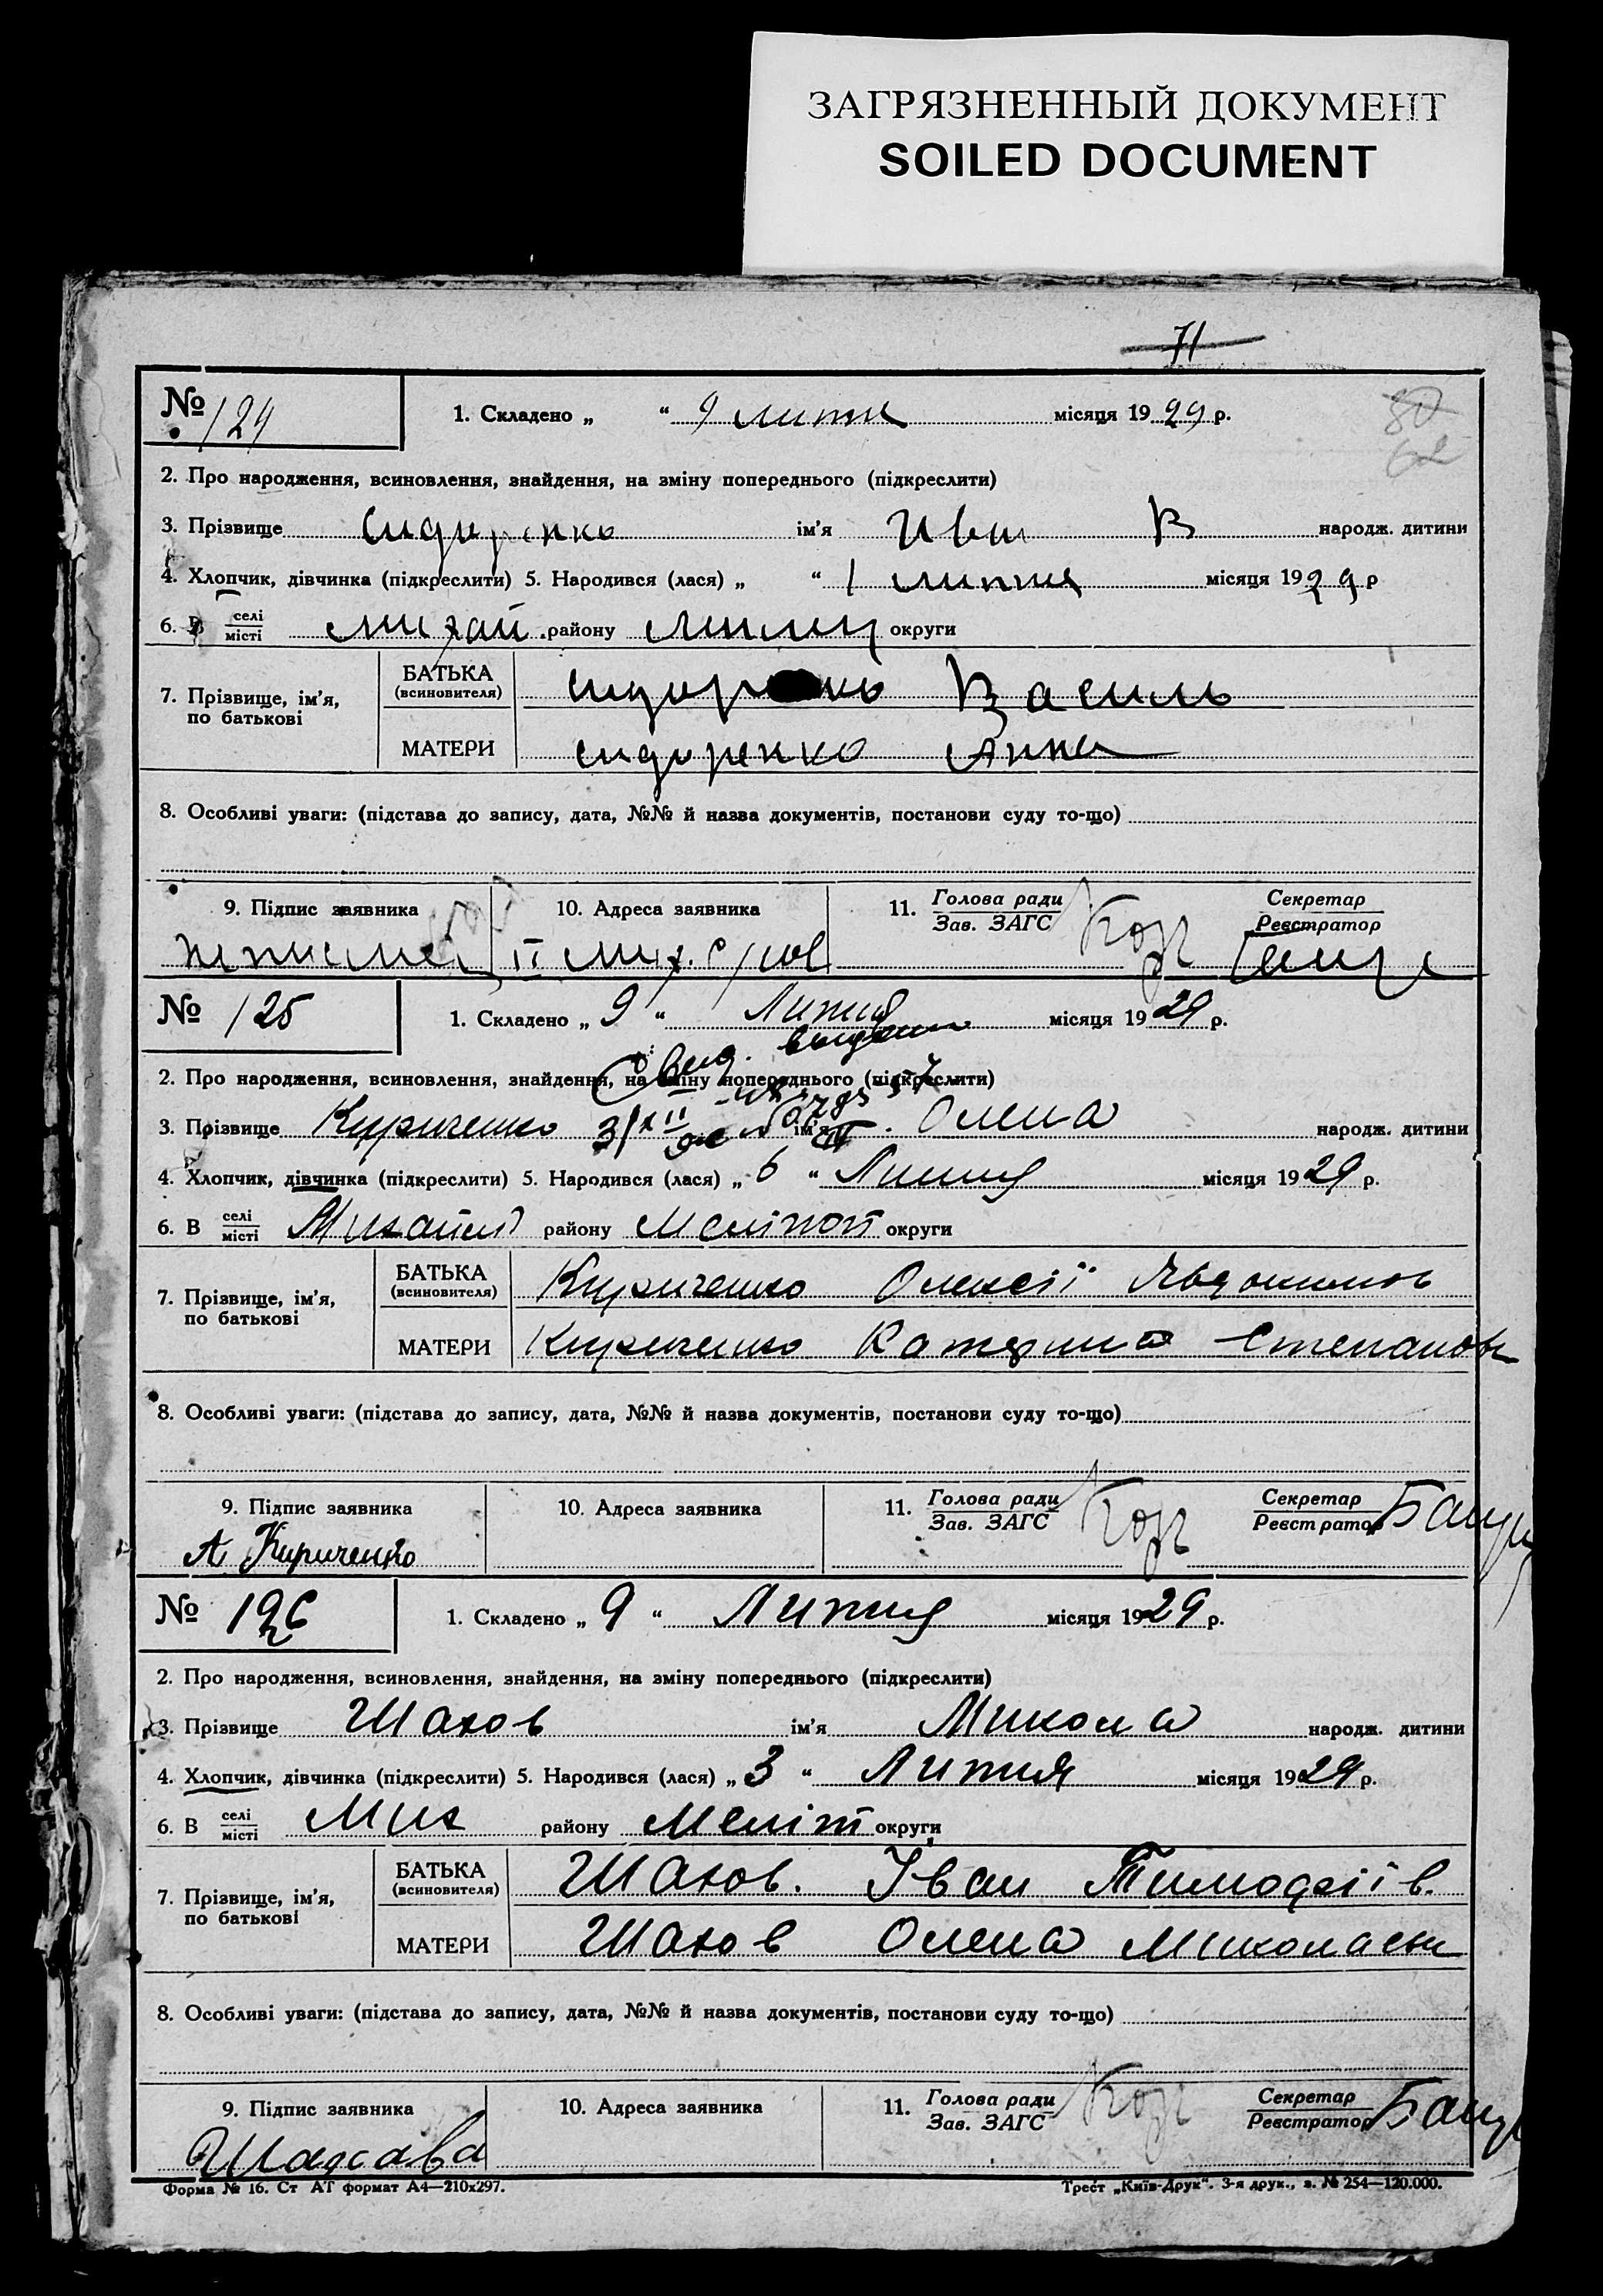 ЗАГРЯЗНЕННЫЙ ДОКУМЕНТ
SOILED DOCUMENT
71
80
62
№ 124 1. Складено „ “ 9 липня місяця 1929 р.
2. Про народження, всиновлення, знайдення, на зміну попереднього (підкреслити)
3. Прізвище Сидоренко ім'я Іван В народж. дитини
4. Хлопчик, дівчинка (підкреслити) 5. Народився (лася) „ “ 1 липня місяця 1929 р
6. В селі місті Михай. району округи
7. Прізвище, ім'я, по батькові БАТЬКА (всиновителя) Сидоренко Василь
МАТЕРИ Сидоренко Анна
8. Особливі уваги: (підстава до запису, дата, №№ й назва документів, постанови суду то-що)
9. Підпис заявника 10. Адреса заявника 11. Голова ради Зав. ЗАГС Секретар Реєстратор
II Мих. с/рад
№ 125 1. Складено „ 9 “ Липня місяця 1929 р.
2. Про народження, всиновлення, знайдення, на зміну попереднього (підкреслити)
3. Прізвище Кириченко ім'я Олена народж. дитини
4. Хлопчик, дівчинка (підкреслити) 5. Народився (лася) „ 6 “ Липня місяця 1929 р.
6. В селі місті Михайл району Меліпоп округи
7. Прізвище, ім'я, по батькові БАТЬКА (всиновителя) Кириченко Олексії Явдокимов
МАТЕРИ Кириченко Катерина Степанов
8. Особливі уваги: (підстава до запису, дата, №№ й назва документів, постанови суду то-що)
9. Підпис заявника 10. Адреса заявника 11. Голова ради Зав. ЗАГС Секретар Реєстратор
А Кириченко
№ 126 1. Складено „ 9 “ Липня місяця 1929 р.
2. Про народження, всиновлення, знайдення, на зміну попереднього (підкреслити)
3. Прізвище Шахов ім'я Микола народж. дитини
4. Хлопчик, дівчинка (підкреслити) 5. Народився (лася) „ 3 “ Липня місяця 1929 р.
6. В селі місті Мих району Меліт округи
7. Прізвище, ім'я, по батькові БАТЬКА (всиновителя) Шахов. Іван Тимофіїв.
МАТЕРИ Шахов Олена Миколаєв
8. Особливі уваги: (підстава до запису, дата, №№ й назва документів, постанови суду то-що)
9. Підпис заявника 10. Адреса заявника 11. Голова ради Зав. ЗАГС Секретар Реєстратор
Шахава
Форма № 16. Ст АТ формат А4—210х297. Трест „Київ-Друк“. 3-я друк., з. № 254—120.000.